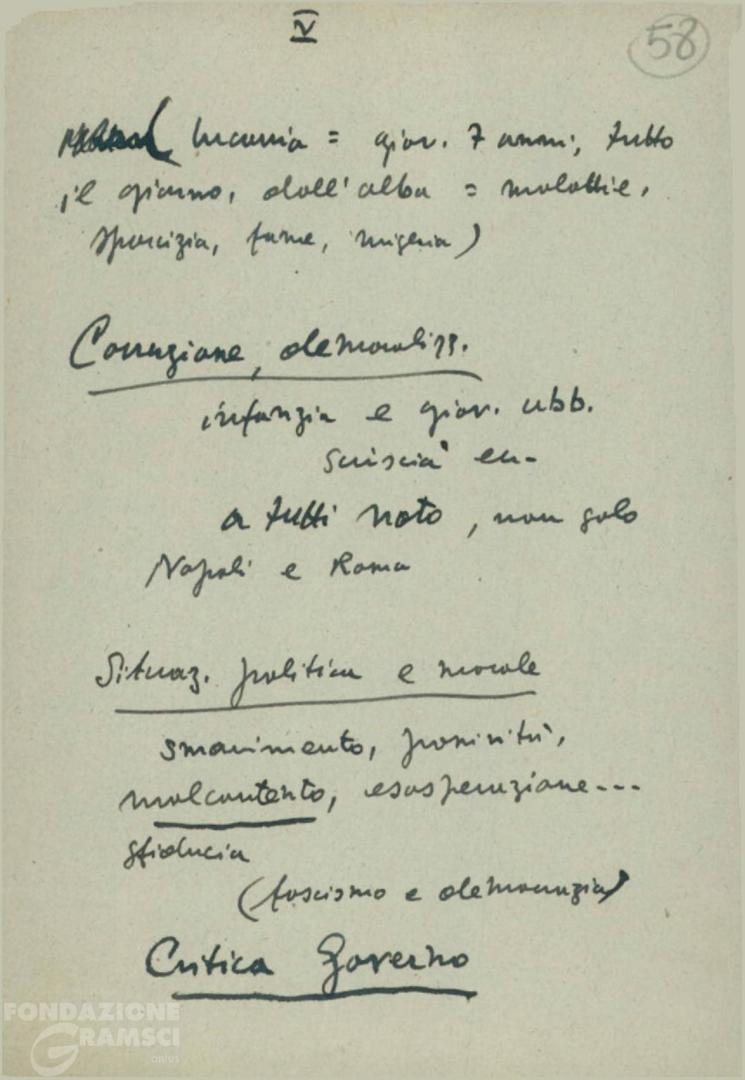 IV
58
( Lucania = giov. 7 anni, tutto
il giorno, dall'alba = malattie,
sporcizia, fame, miseria)
Corruzione, demoralizz.
infanzia e giov. abb.
sciuscià ecc.
a tutti noto, non solo
Napoli e Roma
Situaz. politica e morale
smarrimento, passività,
malcontento, esasperazione...
sfiducia
(fascismo e democrazia)
Critica Governo
FONDAZIONE
GRAMSCI
onlus